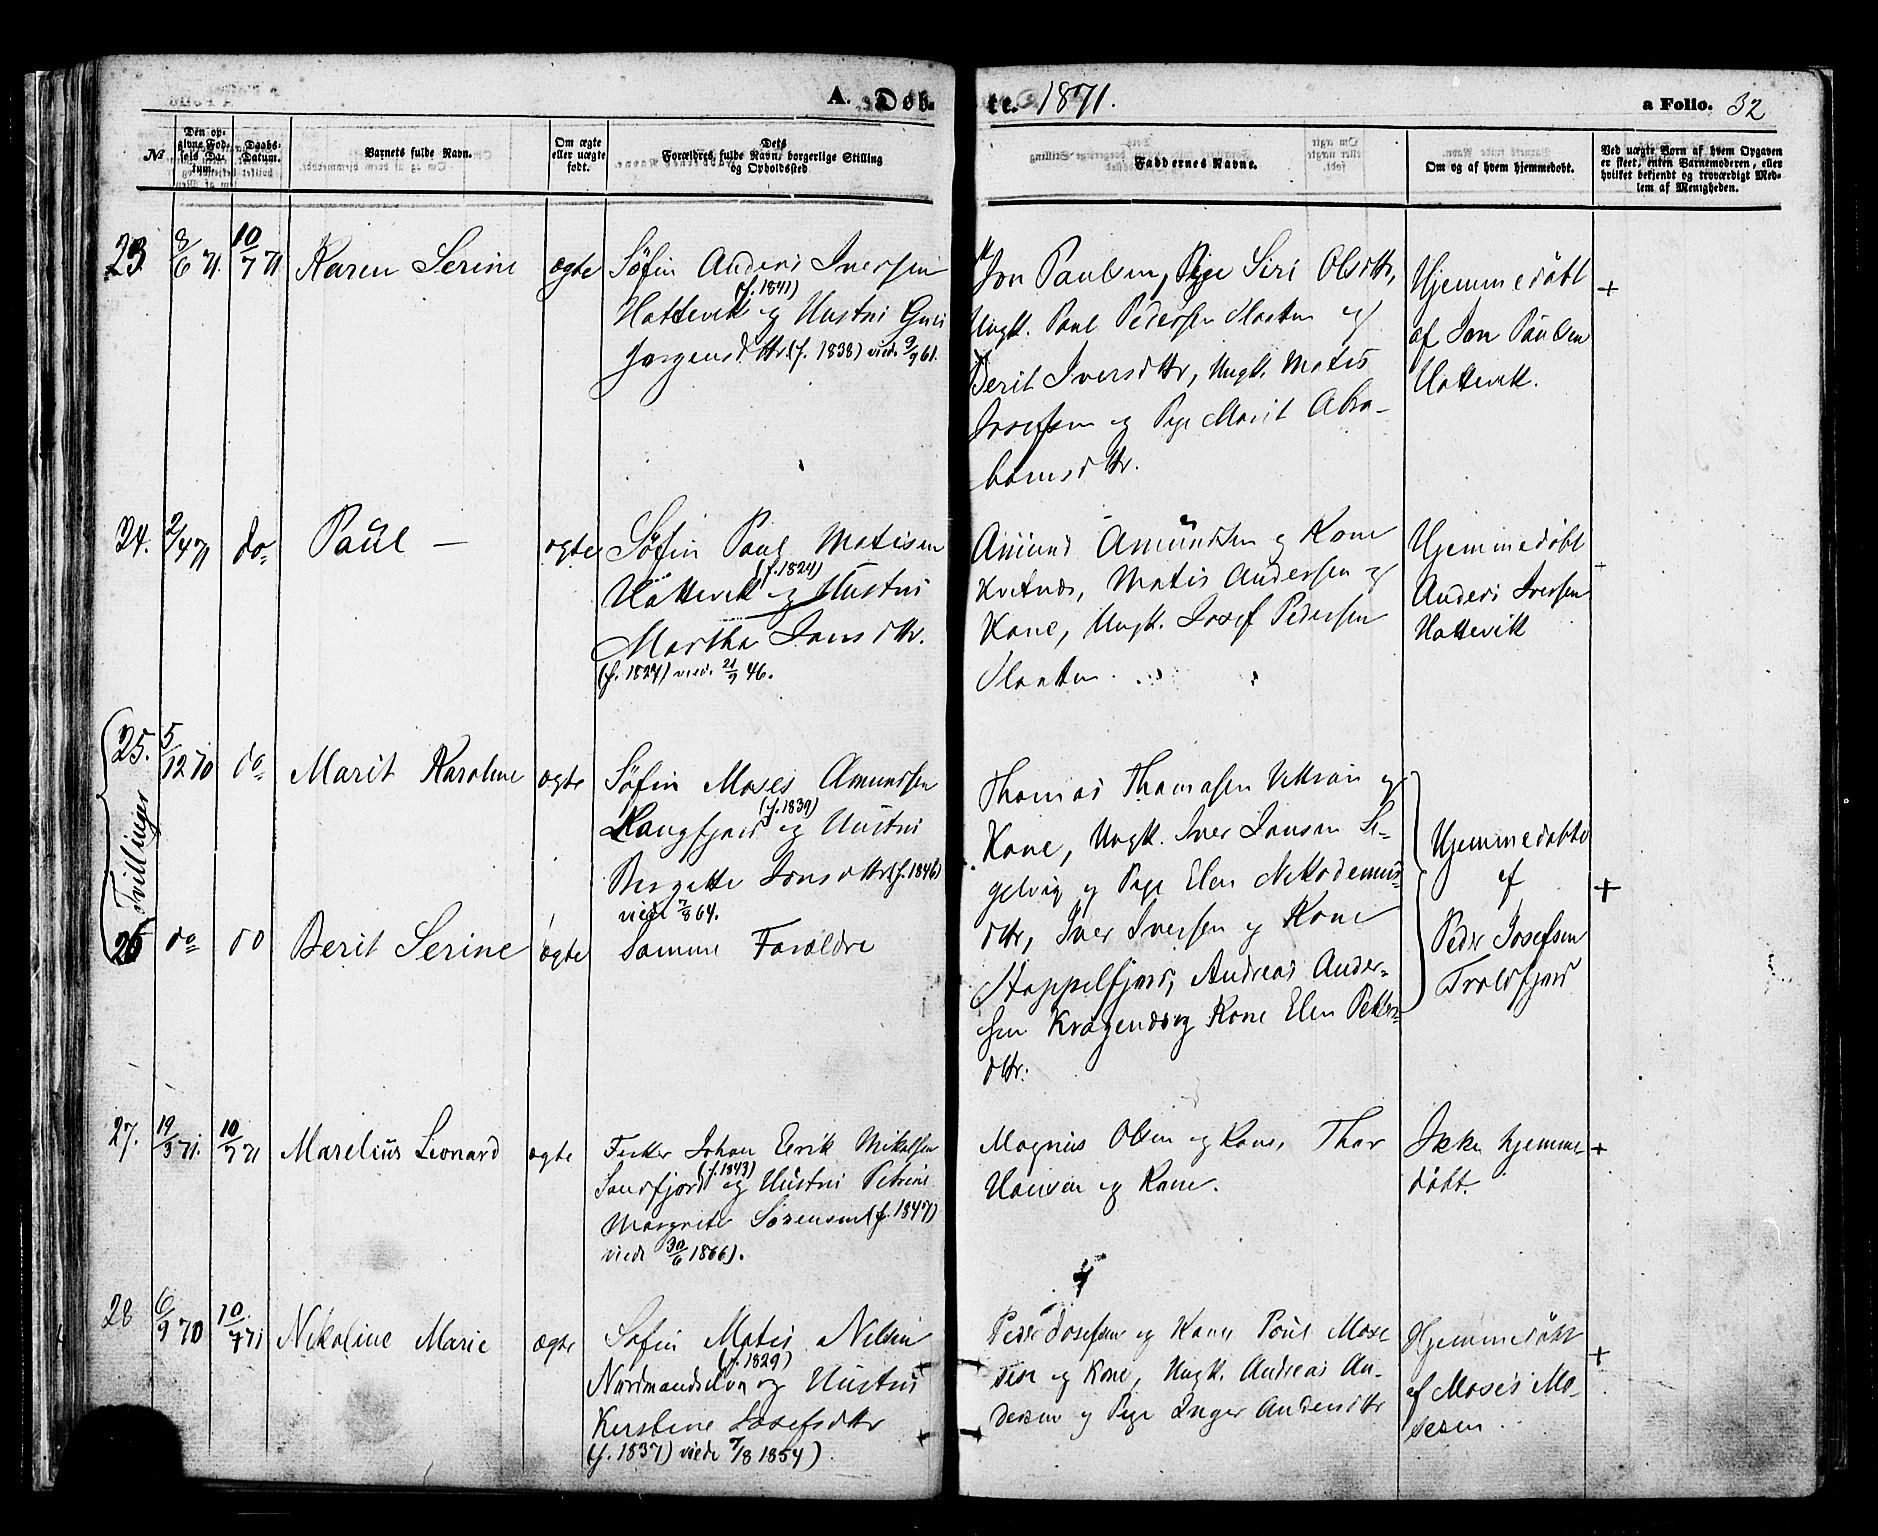 A. Døb-
te. 1871.
a Folio. 32
No
Den op-
givne Fød-
sels Da-
tum.
Daabs-
Datum.
Barnets fulde Navn.
Om ægte
eller uægte
født.
Dets
Forældres fulde Navn, borgerlige Stilling
og Opholdssted.
Faddernes Navne.
Om og af hvem hjemmedøbt.
Ved uægte Børn af hvem Opgaven
er skeet, enten Barnemoderen, eller
hvilket bekjendt og troværdigt Med-
lem af Menigheden.
23. 8/6 71. 10/7 71 Karen Serine ægte
Søfin Anders Iversen
(f. 1841)
Hattevik og Hustru
Jørgensdttr (f. 1838) viede 9/9 61.
Jon Paulsen, Pige Siri Olsdttr,
Ungk. Paul Pedersen Slotten og
Berit Iversdttr, Ungk. Matis
Josefsen og Pige Marit Abra-
hamsdttr.
Hjemmedøbt
af Jon Paulsen
Hattevik.
+
24. 2/4 71 do Paul — ægte
Søfin Paul Matisen
(f. 1824)
Hattevik og Hustru
Martha Jonsdttr.
(f. 1827) viede 21/9 46.
Amund Amundsen og Kone
Kvitnæs, Matis Andersen og
Kone, Ungk. Josef Pedersen
Slotten.
Hjemmedøbt
Anders Iversen
Hattevik
25. 5/12 70 do Marit Karoline ægte
Tvillinger
Søfin Moses Amundsen
(f. 1839)
Langfjord og Hustru
Bergette Jonsdttr (f. 1846)
viede 7/8 64.
26 do do Berit Serine ægte
Samme Forældre
Thomas Thomasen og
Kone, Ungk. Iver Jonsen Se-
gelvig og Pige Elen Nikodemus-
dttr, Iver Iversen og Kone
Stappelfjord, Andreas Ander-
sen Kragenæs og Kone Elen Peders-
dttr.
Hjemmedøbte
af
Peder Josefsen
Troldfjord
+
27. 19/3 71. 10/7 71 Marelius Leonard ægte
Fisker Johan Eerik Mikalsen
(f. 1843)
Sandfjord og Hustru Petrine
Margrete Sørensen (f. 1847)
viede 30/6 1866).
Magnus Olsen og Kone, Thor
Hansen og Kone.
Ikke hjemme-
døbt.
+
28 6/9 70 10/7 71 Nikoline Marie ægte
Søfin Matis Nilsen
(f. 1829)
Nordmandselva og Hustru
Kirstine Josefsdttr
(f. 1837) viede 7/8 1854)
Peder Josefsen og Kone Poul Mose-
sen og Kone, Ungk. Andreas An-
dersen og Pige Inger Andersdttr
Hjemmedøbt
af Moses Mo-
sesen.
+